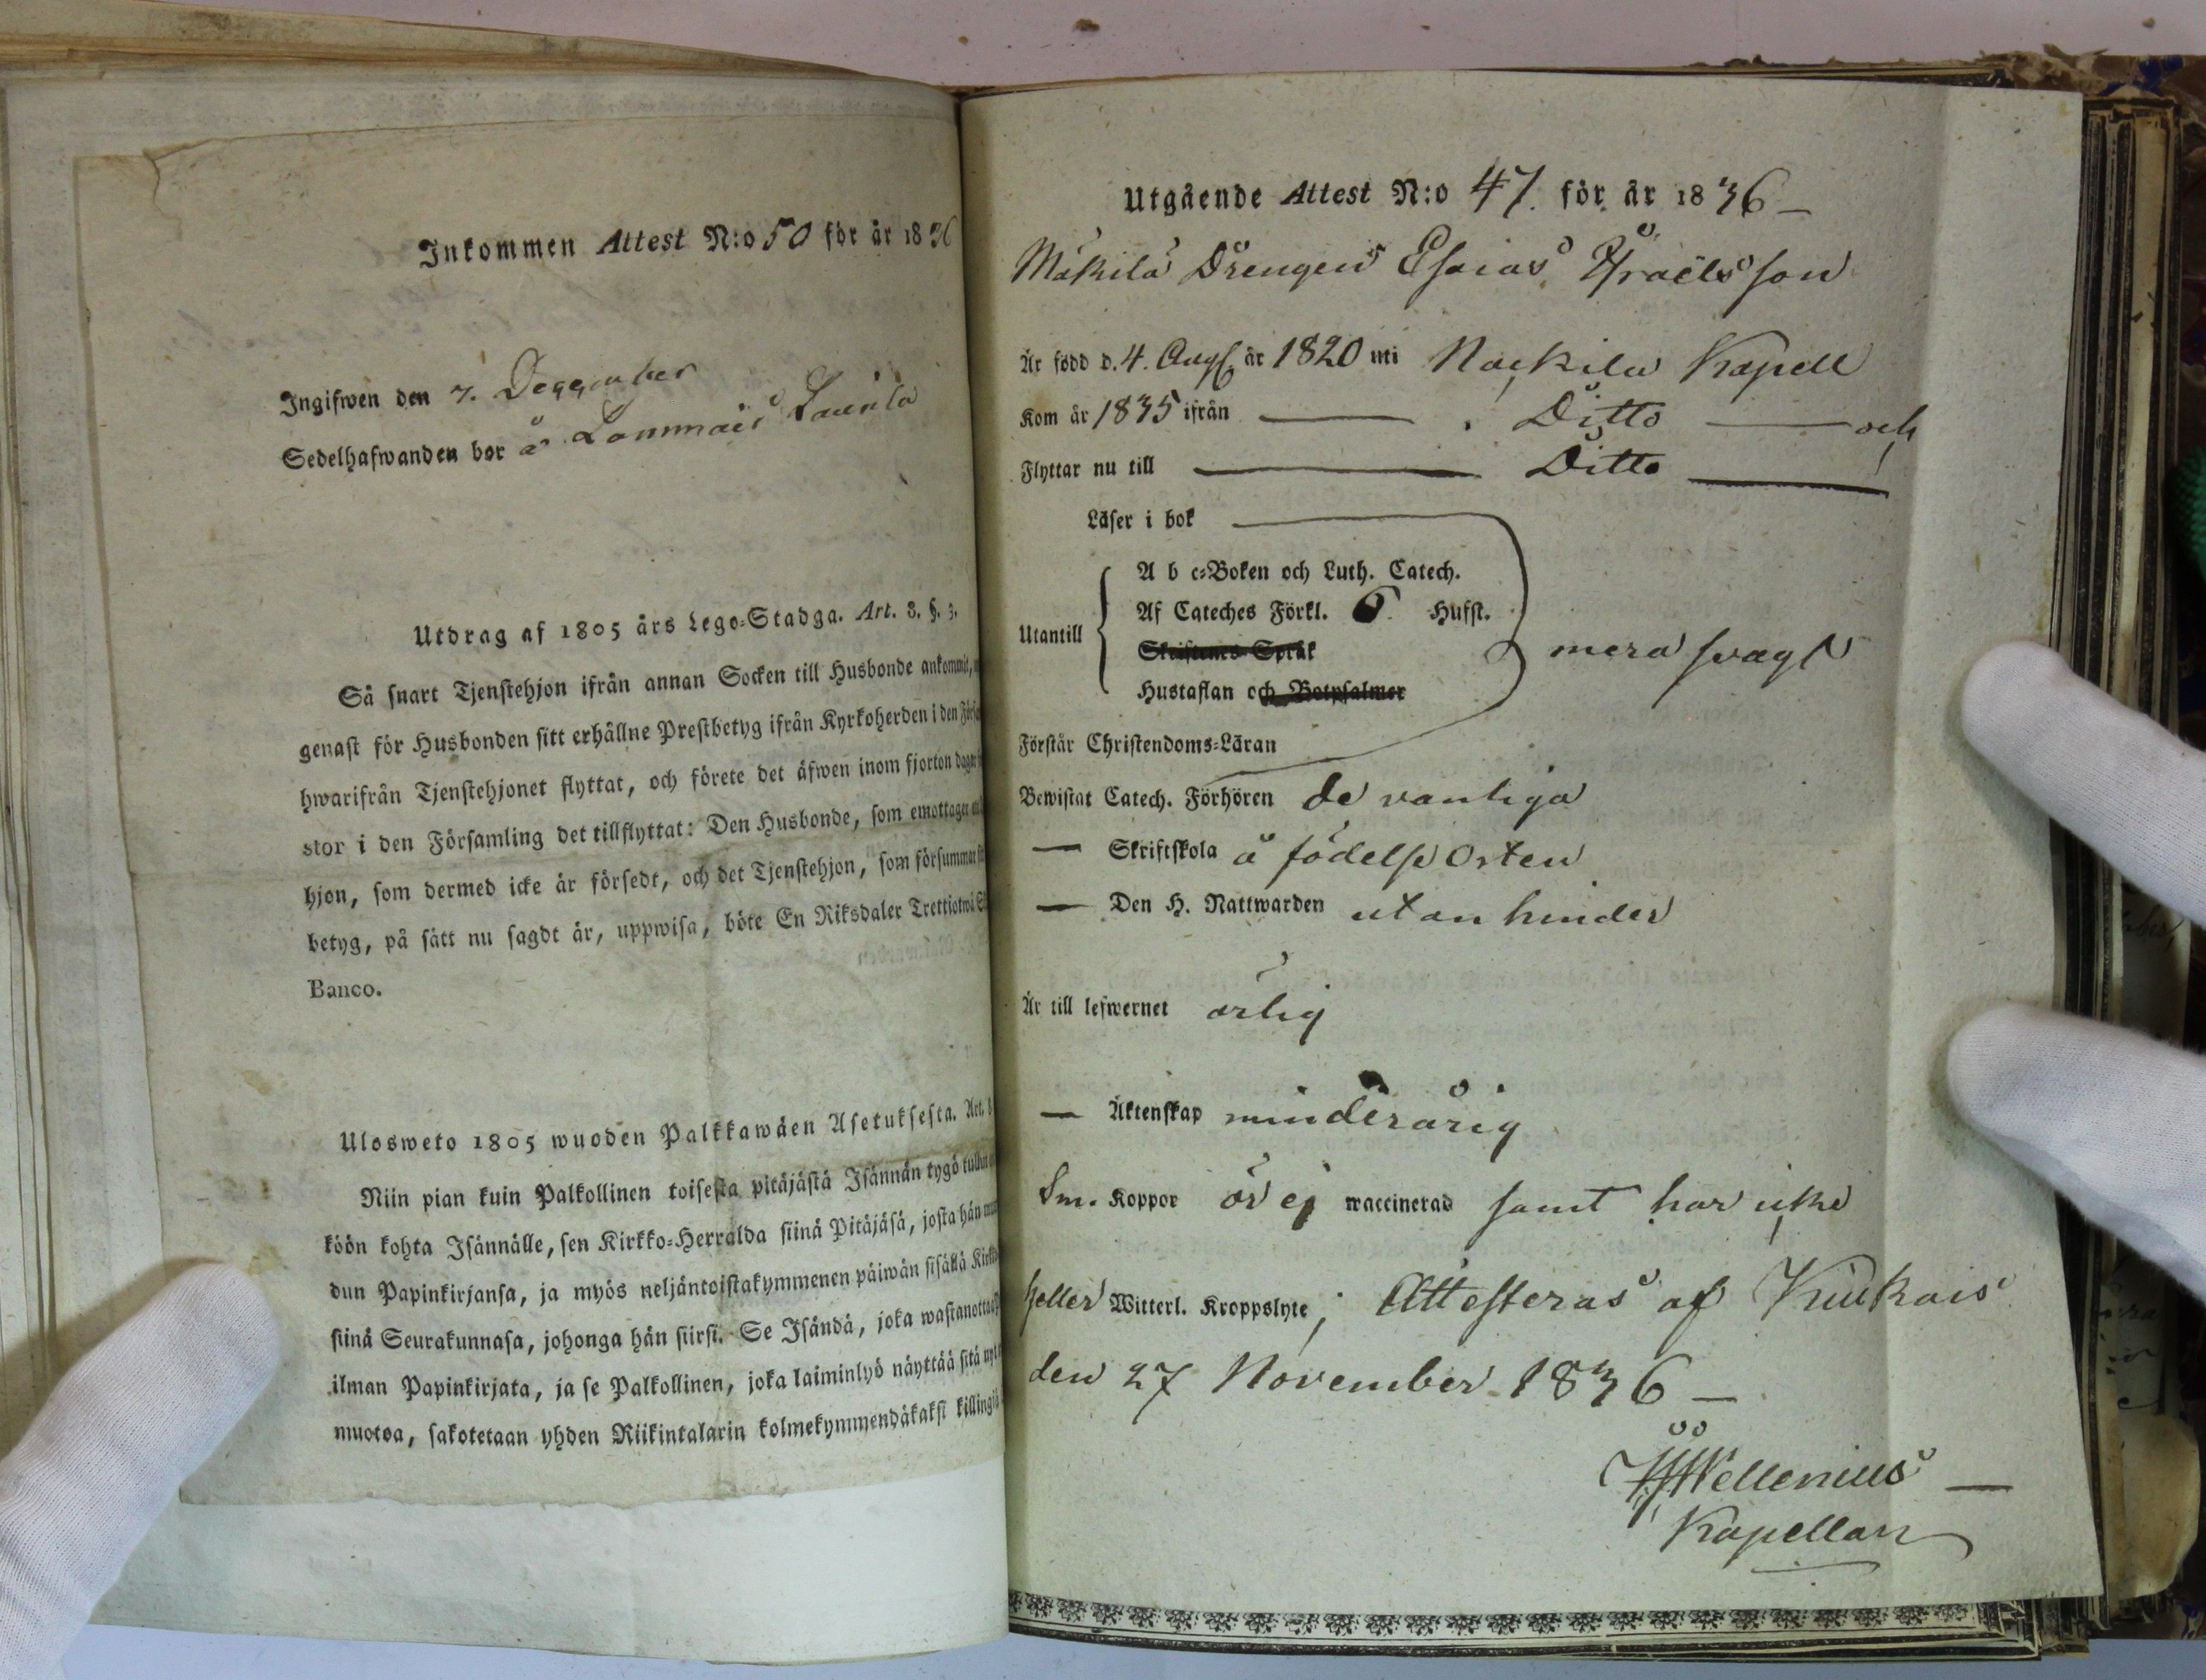 Inkommen Attest N:o 50 för år 1836
Ingifwen den 7. December
Sedelhafwanden bor å Lammais Laurila
Utdrag af 1805 års Lego-Stadga. Art. 8. §. 3.
Så snart Tjenstehjon ifrån annan Socken till Husbonde ankommit,
genast för Husbonden sitt erhållne Prestbetyg ifrån Kyrkoherden i den
hwarifrån Tjenstehjonet flyttat, och förete det äfwen inom fjorton dagar
stor i den Församling det tillflyttat: Den Husbonde, som emottager
hjon, som dermed icke är försedt, och det Tjenstehjon, som försummar
betyg, på sätt nu sagdt är, uppwisa, böte En Riksdaler Trettiotwå
Banco.
Ulosweto 1805 wuoden Palkkawäen Asetuksesta. Art.
Niin pian kuin Palkollinen toisesta pitäjästä Isännän tygö tullut
köön kohta Isännälle, sen Kirkko-Herralda siinä Pitäjäsä, josta hän
dun Papinkirjansa, ja myös neljäntoistakymmenen päiwän sisällä
siinä Seurakunnasa, johonga hän siirsi. Se Isändä, joka wastanottaa
ilman Papinkirjata, ja se Palkollinen, joka laiminlyö näyttää sitä
muotoa, sakotetaan yhden Riikintalarin kolmekymmendäkaksi killingiä
Utgående Attest N:o 47. för år 1836
Mäkilä Drengen Esaias Israelsson
Är född d. 4. Aug. år 1820 uti Nackila Kapell
Kom år 1835 ifrån — Ditto — och
Flyttar nu till — Ditto —
Läser i bok
A b c-Boken och Luth. Catech.
Af Cateches Förkl. 6 Hufst.
Utantill
Skriftenes Språk
Hustaflan och Botpsalmer
mera svagt
Förstår Christendoms-Läran
Bewistat Catech. Förhören de vanliga
— Skriftskola å födelse Orten
— Den H. Nattwarden utan hinder
Är till lefwernet ärlig
— Äktenskap minderårig
Sm. Koppor är ej waccinerad samt har icke
heller Witterl. Kroppslyte; Attesteras af Kiukais
den 27 November 1836 —
Wellenius —
Kapellan